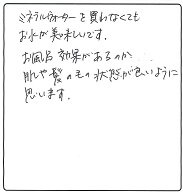 ミネラルウォーターを買わなくても
お水が美味しいです。
お風呂効果があるのか
肌や髪のもの状態が良いように
思います。